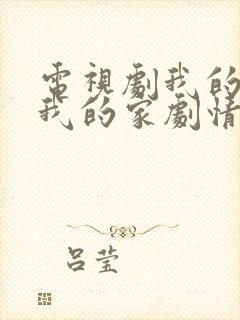 電視劇我的
我的家劇情
呂莹